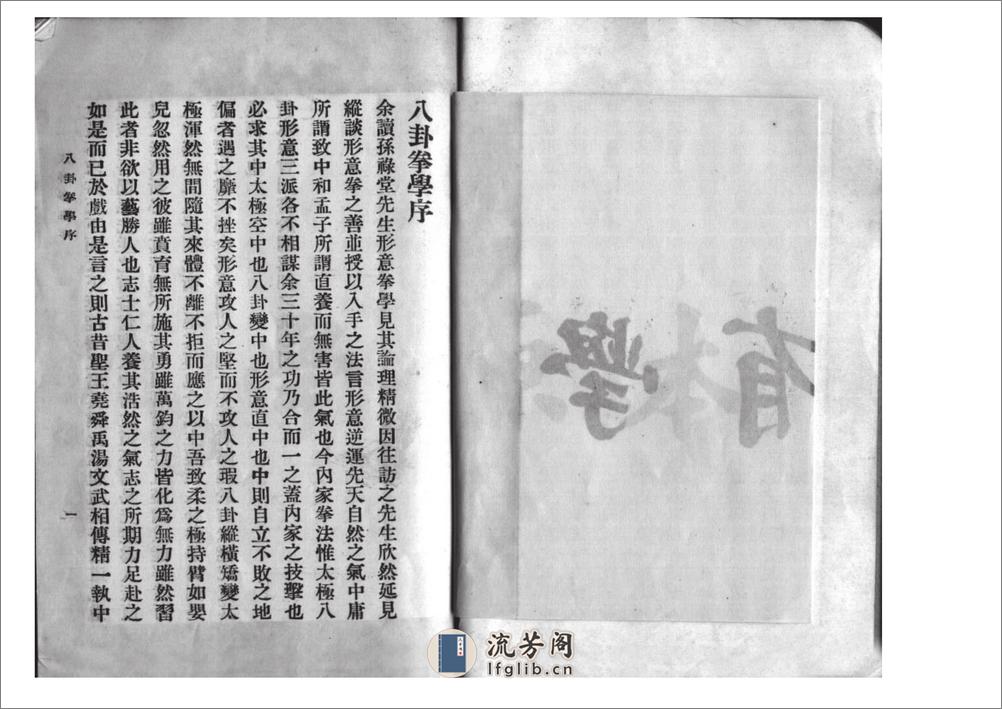 八卦拳學序
余讀孫祿堂先生形意拳學見其論理精微因往訪之先生欣然延見
縱談形意拳之善並授以入手之法言形意逆運先天自然之氣中庸
所謂致中和孟子所謂直養而無害皆此氣也今內家拳法惟太極八
卦形意三派各不相謀余三十年之功乃合而一之蓋內家之技擊也
必求其中太極空中也八卦變中也形意直中也中則自立不敗之地
偏者遇之靡不挫矣形意攻人之堅而不攻人之瑕八卦縱橫矯變太
極渾然無間隨其來體不離不拒而應之以中吾致柔之極持臂如嬰
兒忽然用之彼雖賁育無所施其勇雖萬鈞之力皆化爲無力雖然習
此者非欲以藝勝人也志士仁人養其浩然之氣志之所期力足赴之
如是而已於戲由是言之則古昔聖王堯舜禹湯文武相傳精一執中
八卦拳學序
一
有
學
流芳阁
lfglib.cn